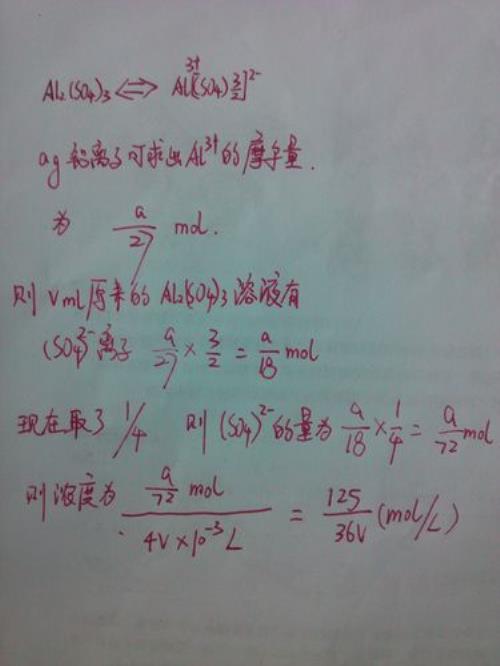 Al₂(SO₄)₃ ⇔ Al³⁺[(SO₄)3/2]²⁻
ag 铝离子可求出Al³⁺的摩尔量.
为 a/27 mol.
则 Vml原来的 Al₂(SO₄)₃ 溶液有
(SO₄)²⁻离子 a/27 × 3/2 = a/18 mol
现在取了 1/4 则 (SO₄)²⁻的量为 a/18 × 1/4 = a/72 mol
则浓度为 a/72 mol / 4V×10⁻³L = 125/36V (mol/L)